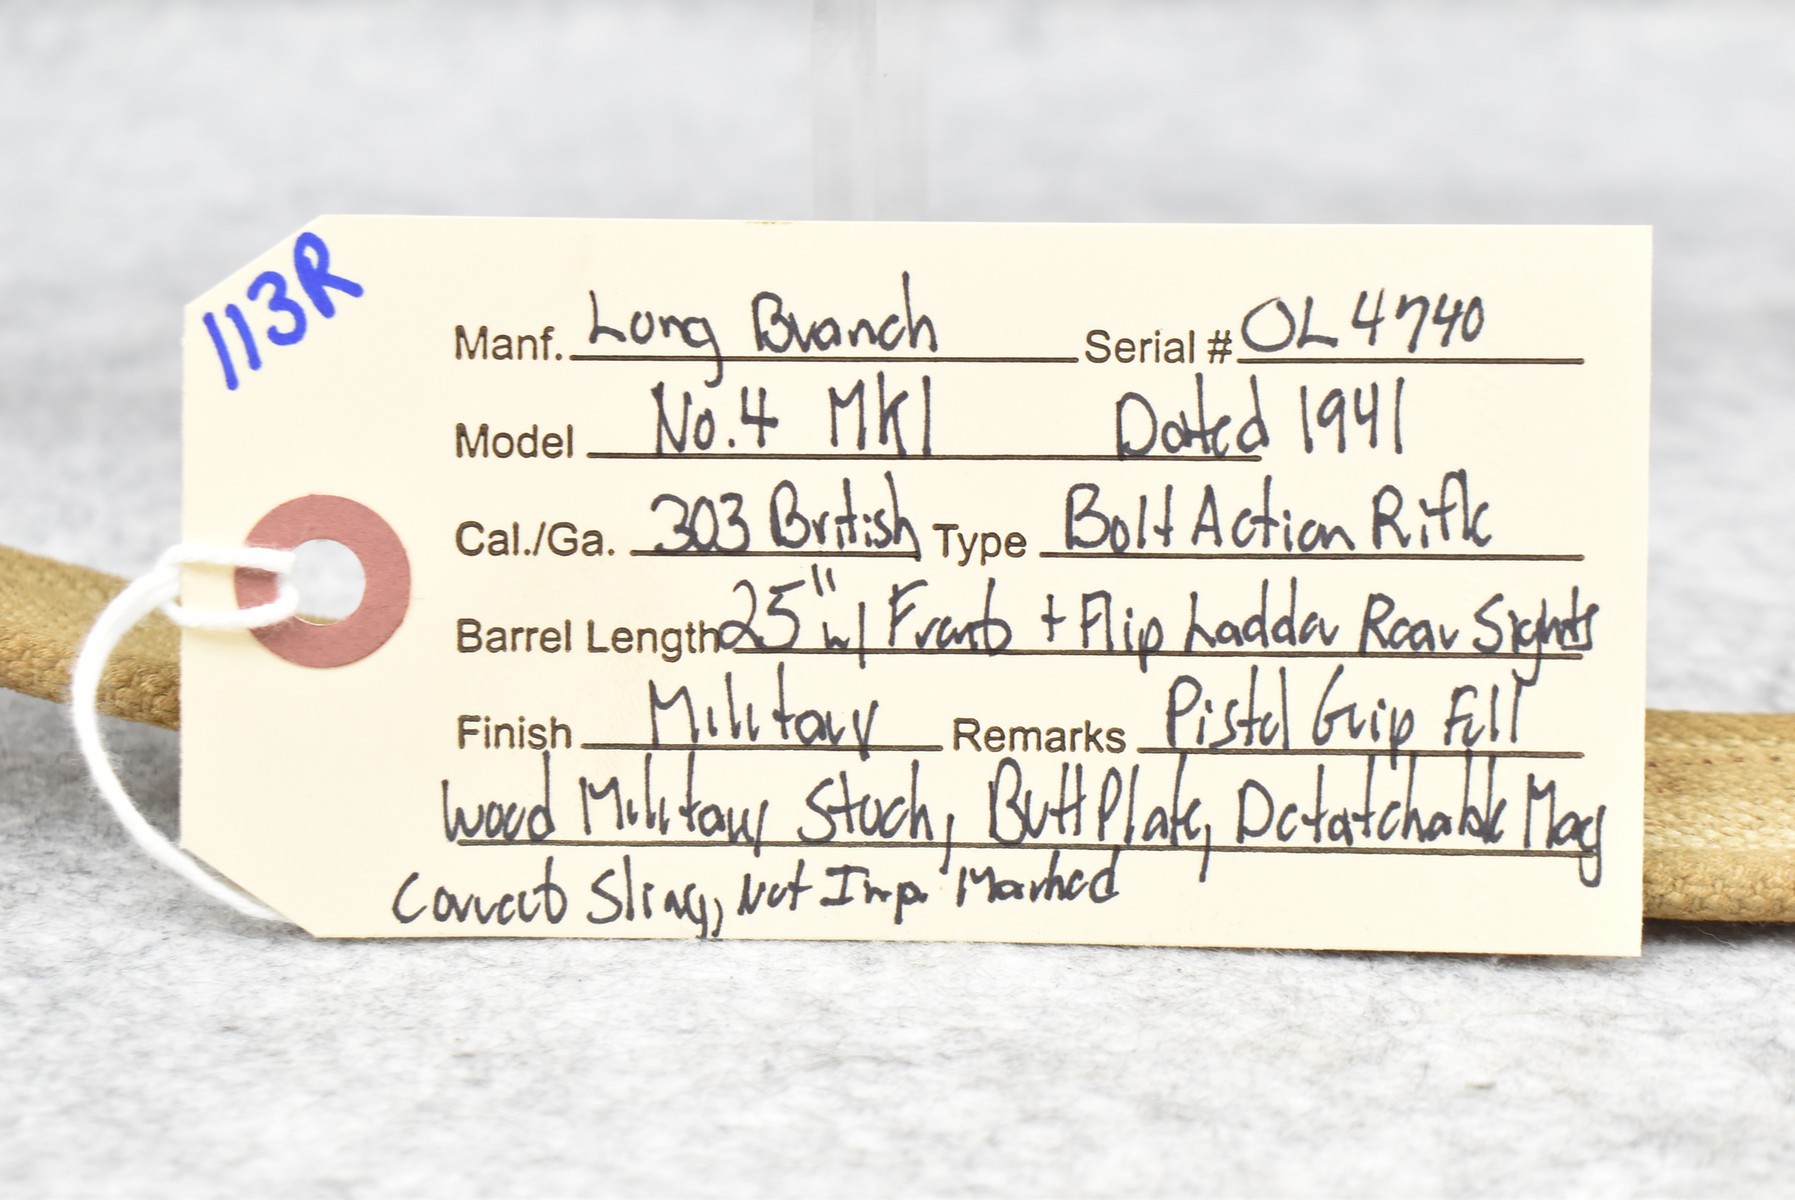 113R
Manf. Long Branch Serial # OL4740
Model No.4 MK1 Dated 1941
Cal./Ga. 303 British Type Bolt Action Rifle
Barrel Length 25" w/ Front + Flip Ladder Rear Sights
Finish Military Remarks Pistol Grip Full
Wood Military Stock, Butt Plate, Detatchable Mag
Correct Sling, Not Imp. Marked